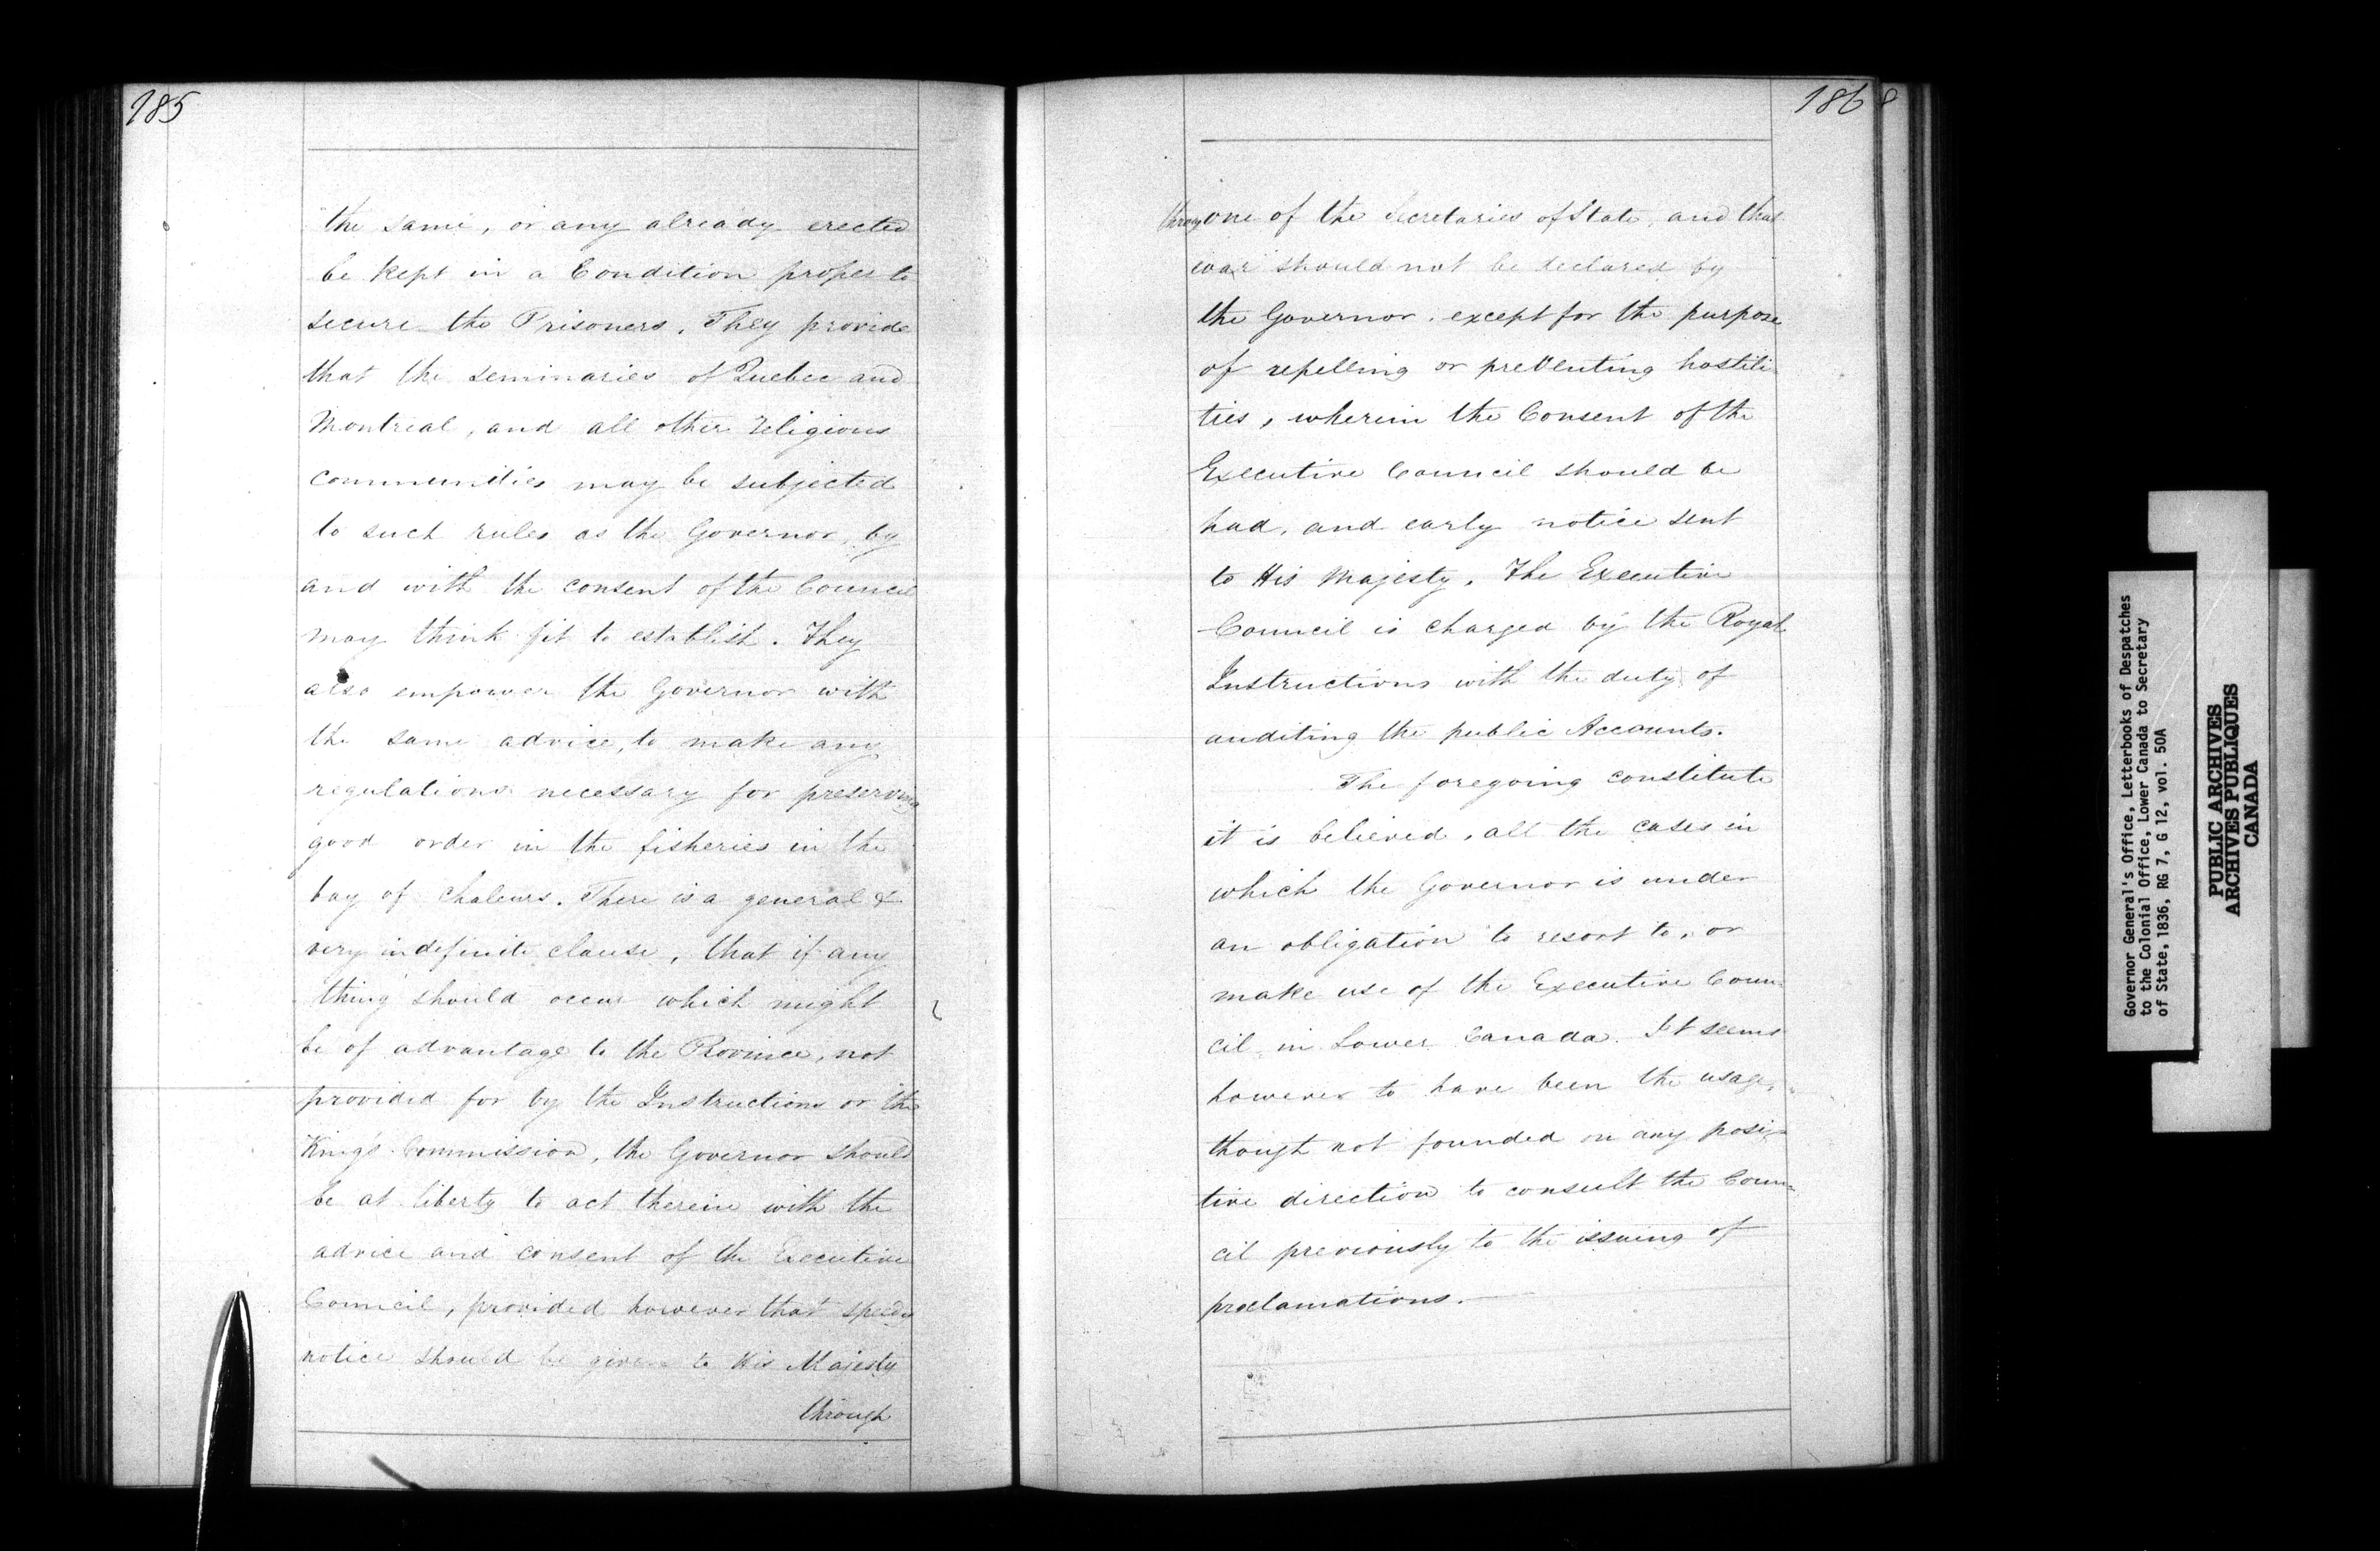 185
the same, or any already erected
be kept in a Condition proper to
secure the Prisoners. They provide
that the seminaries of Quebec and
Montreal, and all other religious
communities may be subjected
to such rules as the Governor, by
and with the consent of the Council
may think fit to establish. They
also empower the Governor with
the same advice, to make any
regulations necessary for preserving
good order in the fisheries in the
bay of Chaleurs. There is a general &
very indefinite clause, that if any
thing should occur which might
be of advantage to the Province, not
provided for by the Instructions or the
King's Commission, the Governor should
be at liberty to act therein with the
advice and consent of the Executive
Council, provided however that speedy
notice should be given to His Majesty
through
186
through one of the Secretaries of State, and that
war should not be declared by
the Governor, except for the purpose
of repelling or preventing hostili
ties, wherein the Consent of the
Executive Council should be
had, and early notice sent
to His Majesty. The Executive
Council is charged by the Royal
Instructions with the duty of
auditing the public Accounts.
The foregoing constitute
it is believed, all the cases in
which the Governor is under
an obligation to resort to, or
make use of the Executive Coun=
cil in Lower Canada. It seems
however to have been the usage,
though not founded on any posi=
tive direction to consult the Coun=
cil previously to the issuing of
proclamations.
Governor General's Office, Letterbooks of Despatches
to the Colonial Office, Lower Canada to Secretary
of State, 1836, RG 7, G 12, vol. 50A
PUBLIC ARCHIVES
ARCHIVES PUBLIQUES
CANADA